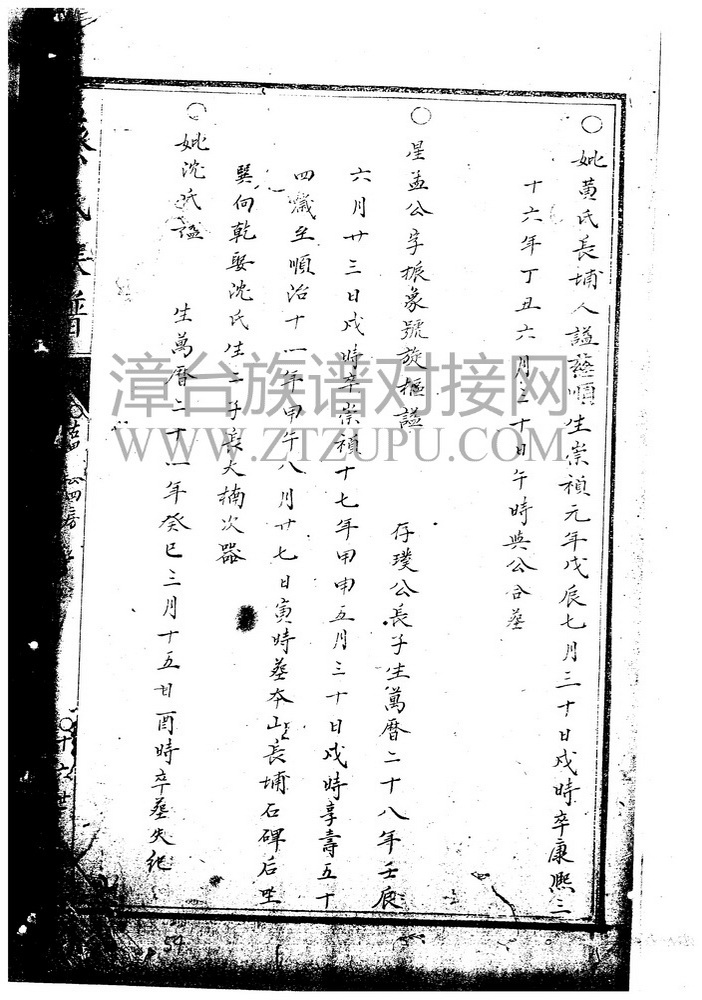 ○妣黄氏長埔人諡慈順生崇禎元年戊辰七月三十日戌時卒康熙三
十六年丁丑六月三十日午時與公合墓
○星孟公字振象號旋樞諡 存璞公長子生萬曆二十八年壬辰
六月廿三日戌時卒崇禎十七年甲申五月三十日戌時享壽五十
四歲至順治十一年甲午八月廿七日寅時墓本山長埔石碑后坐
巽向乾娶沈氏生二子長大楠次器
○妣沈氏諡 生萬曆二十一年癸巳三月十五日酉時卒墓失紀
氏長譜
房
十六世
漳台族谱对接网
WWW.ZTZUPU.COM
54